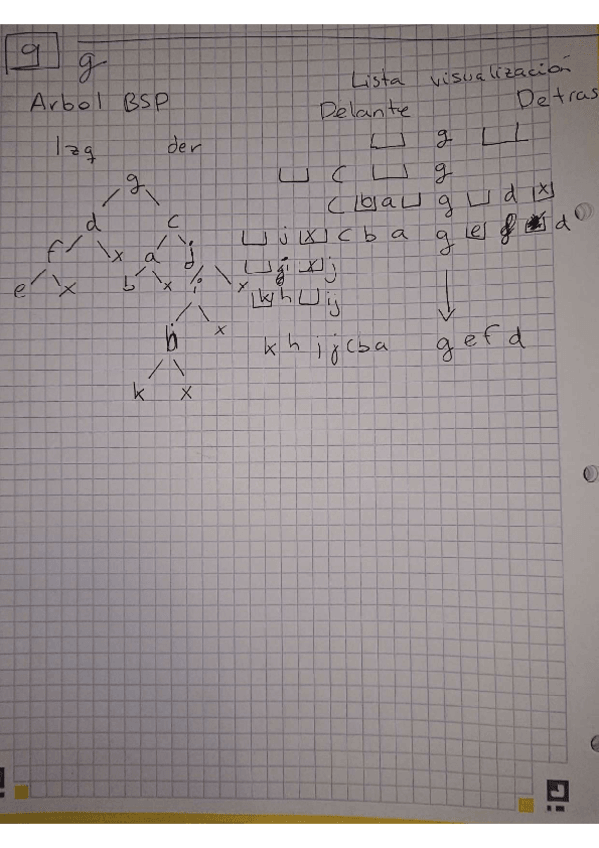 9 g
Lista visualización
Arbol BSP Delante Detras
Izq der g
g c g
d c c b a g d x
f x a j j x c b a g e f d
e x b x i x i x j
h x k h i j
k x k h i j c b a g e f d